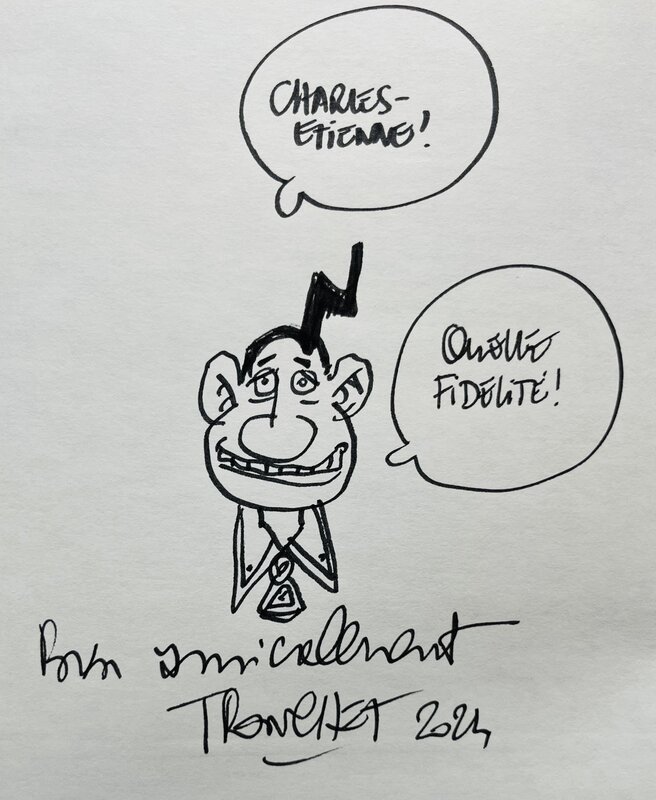 CHARLES-
ETIENNE!
QUELLE
FIDELITÉ!
Bien amicalement
TRONCHET 2024